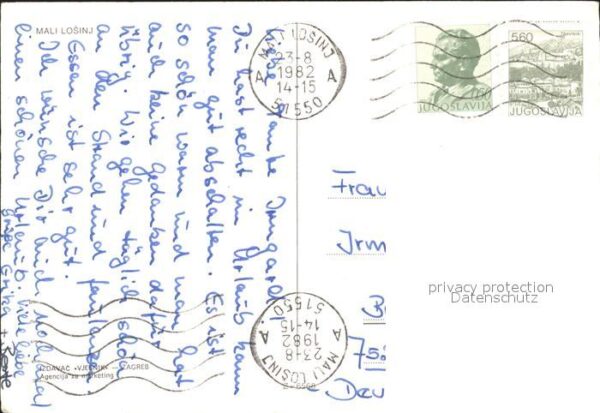 MALI LOŠINJ
Liebe Tante Irmgard!
Du hast recht im Urlaub kann
man gut abschalten. Es ist
so schön warm und man hat
auch keine Gedanken dafür
übrig. Wir gehen täglich schön
an den Strand und
Essen ist sehr gut.
Ich wünsche Dir auch noch mal
einen schönen Urlaub. Viele liebe
Grüße Erika + Renate
IZDAVAČ »VJESNIK« — ZAGREB
Agencija za marketing
MALI LOŠINJ
23-8
1982
14-15
51550
A A
560
JUGOSLAVIJA
JUGOSLAVIJA
Frau
Irm
B
75
Deu
privacy protection
Datenschutz
MALI LOŠINJ
23-8
1982
14-15
51550
A A